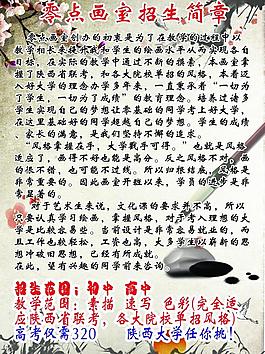 零点画室招生简章
零点画室创办的初衷是为了在教学的过程中以
教学相长来提升我和学生的绘画水平从而实现各自
目标，在实际的教学中通过不断的摸索，本画室掌
握了陕西省联考，和各大院校单招的风格，本着迈
入好大学的理念办学多年来，一直秉承着“一切为
了学生，一切为了成绩”的教育理念。培养过诸多
学生实现自己的梦想让本基础的同学考上好大学，
在这里基础好的同学超越自己的梦想。学生的成绩
家长的满意，是我们坚持不懈的追求。
“风格掌握在手，大学就手可得。”也就是风格
适应了，画得不好也能是高分。反之风格不对，画
的纵不错，也可能不过线。所以归根结底，风格是
非常重要的。因此画室开班以来，学员的进步是非
显著的
对于艺术生来说，文化课的要求并不高，所以
只要认真学习绘画，掌握风格，对于考入理想的大
学是比较容易些。当前设计是非常容易就业的，而
且工作也较轻松，工资也高，大多学生以崭新的思
想冲破旧思想，已经有所成就。
在此，望有兴趣的同学前来咨询
招生范围：初中 高中
教学范围：素描 速写 色彩(完全适
应陕西省联考，各大院校单招风格)
高考仅需320 陕西大学任你挑！